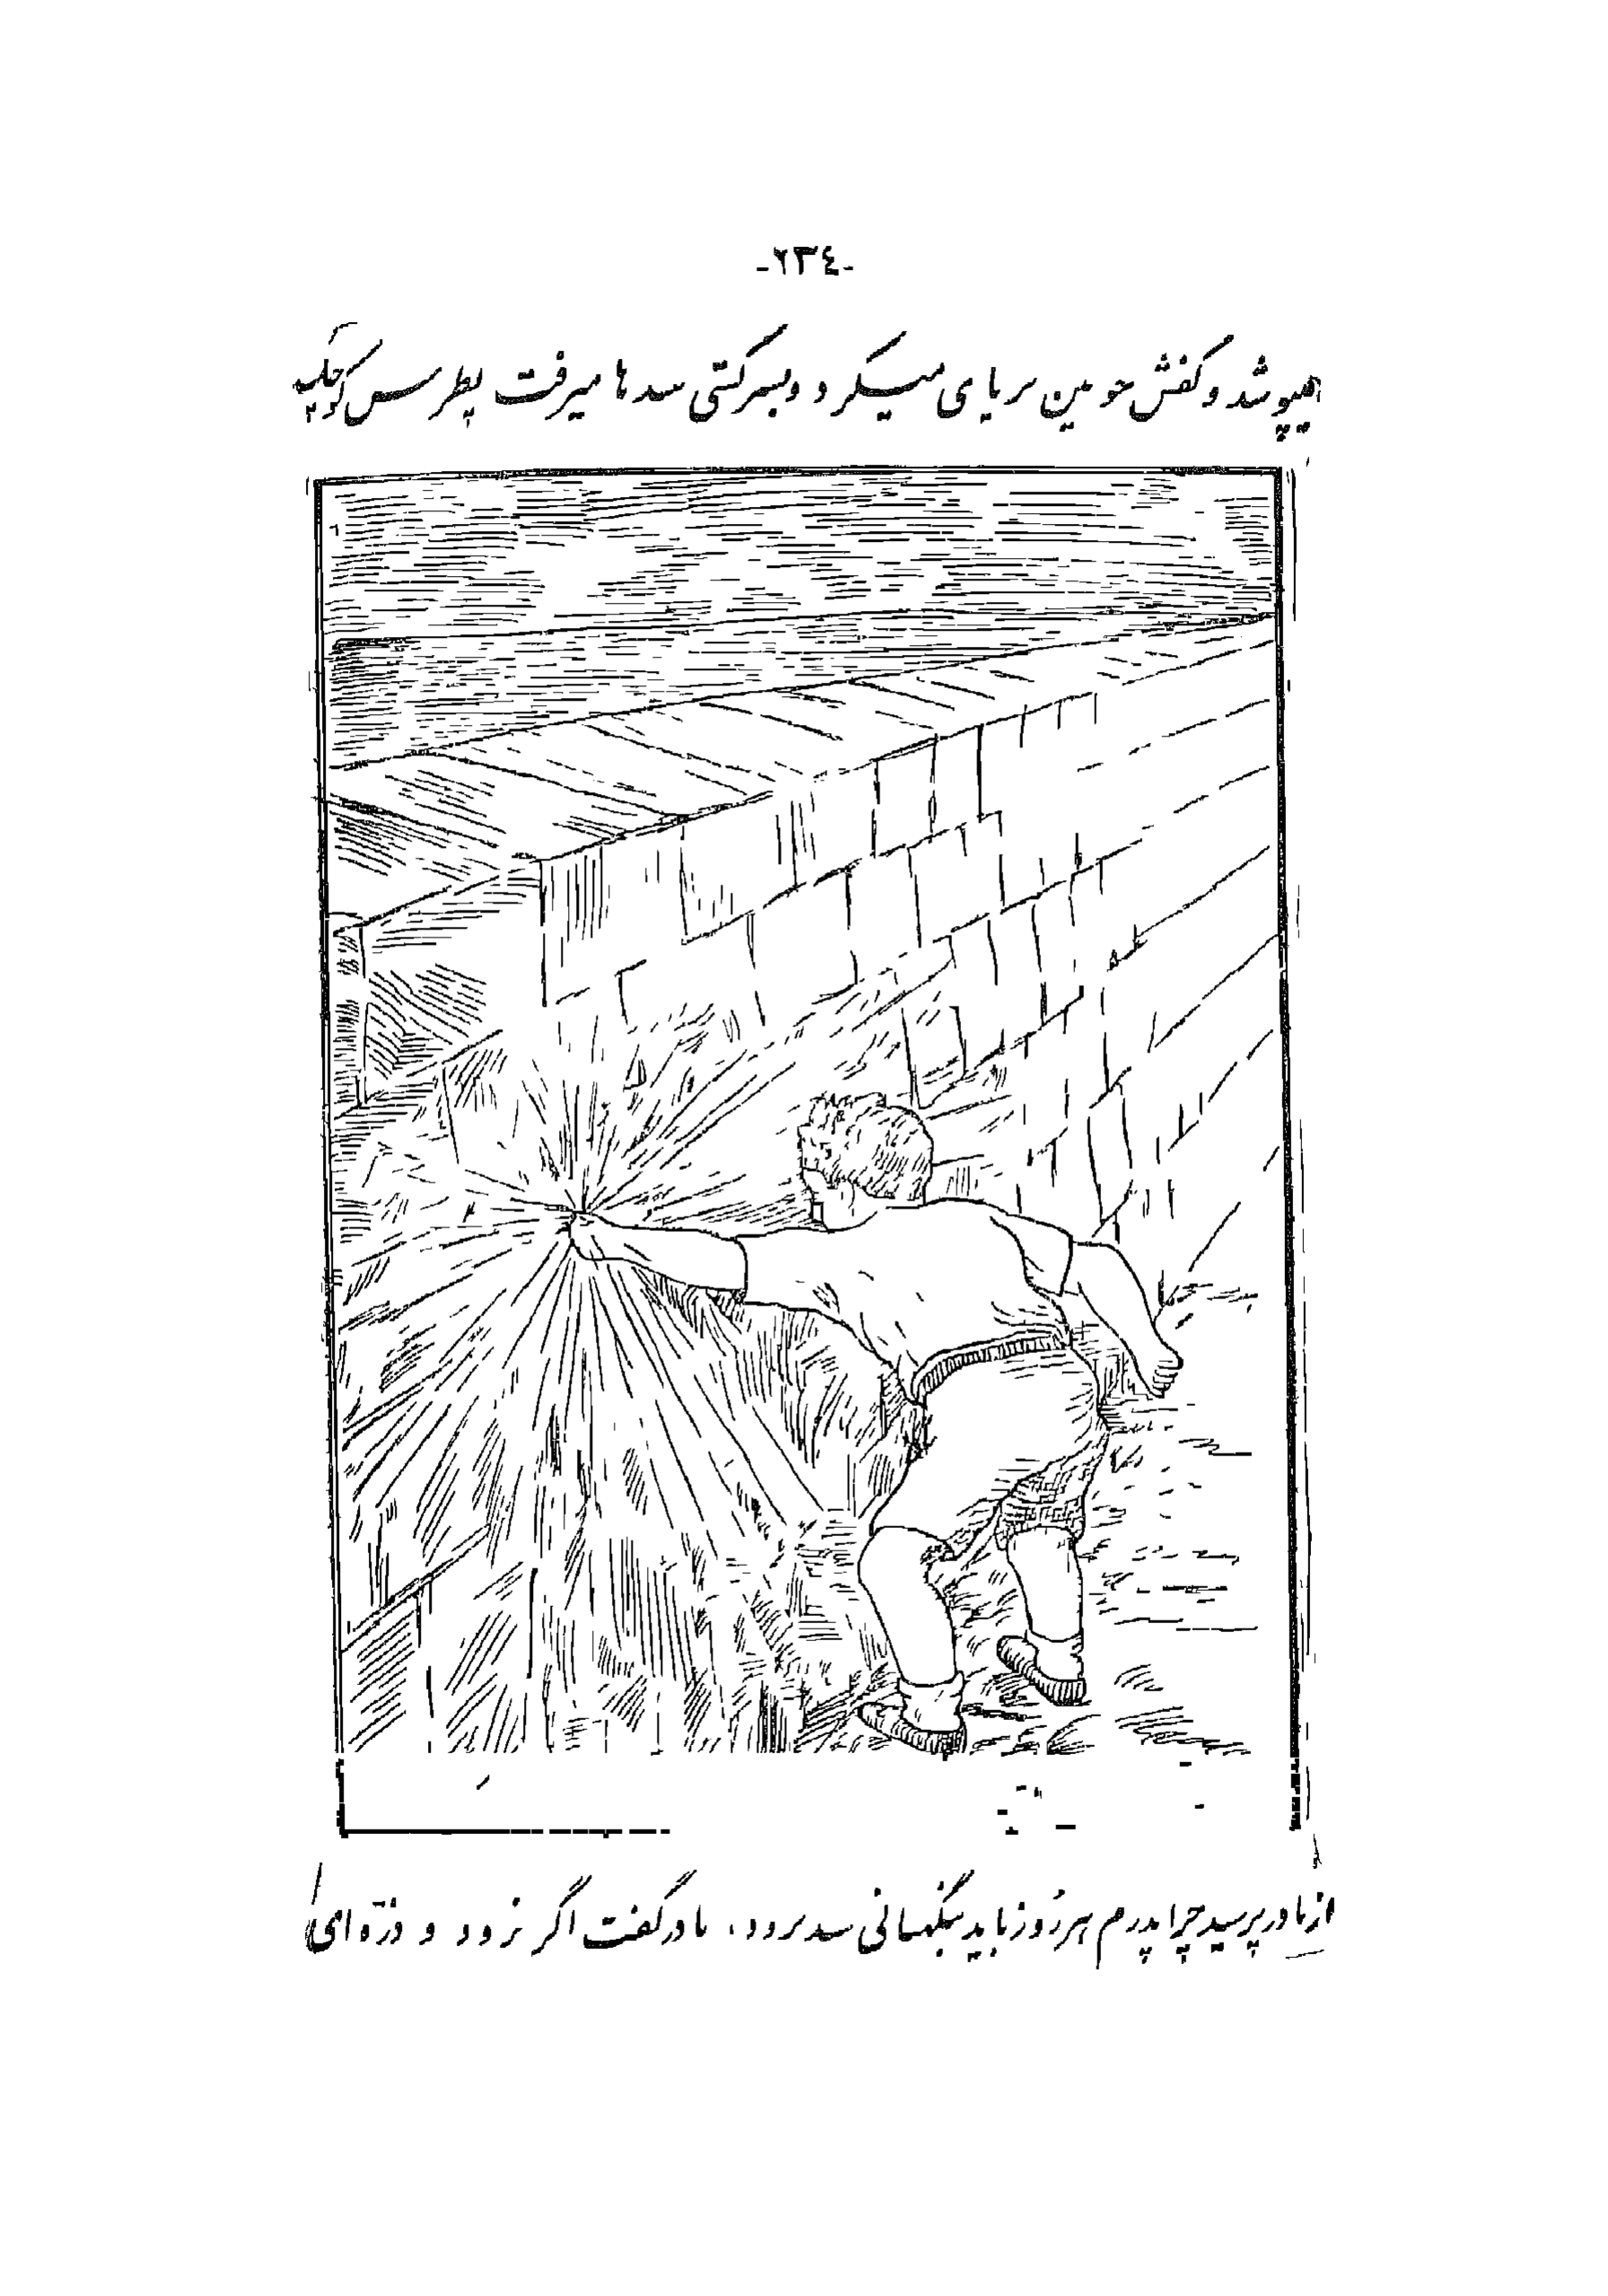 -٢٣٤-
میپوشد و کفش چوبین بر پا می‌میکرد و بسرکشی سدها میرفت پطرس کوچک
از مادر پرسید چرا پدرم هرروز باید بنگهبانی سد برود، مادر گفت اگر نرود و ذرّه‌ای